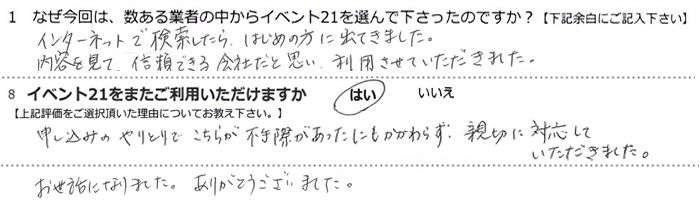 1 なぜ今回は、数ある業者の中からイベント21を選んで下さったのですか？【下記余白にご記入下さい】
インターネットで検索したら、はじめの方に出てきました。
内容を見て、信頼できる会社だと思い、利用させていただきました。
8 イベント21をまたご利用いただけますか はい いいえ
【上記評価をご選択頂いた理由についてお教え下さい。】
申し込みのやりとりでこちらが不手際があったにもかかわらず、親切に対応して
いただきました。
お世話になりました。ありがとうございました。